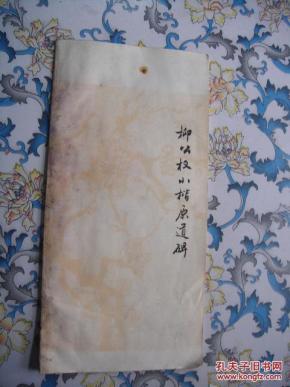 柳公权小楷原道碑
孔夫子旧书网
www.kongfz.com